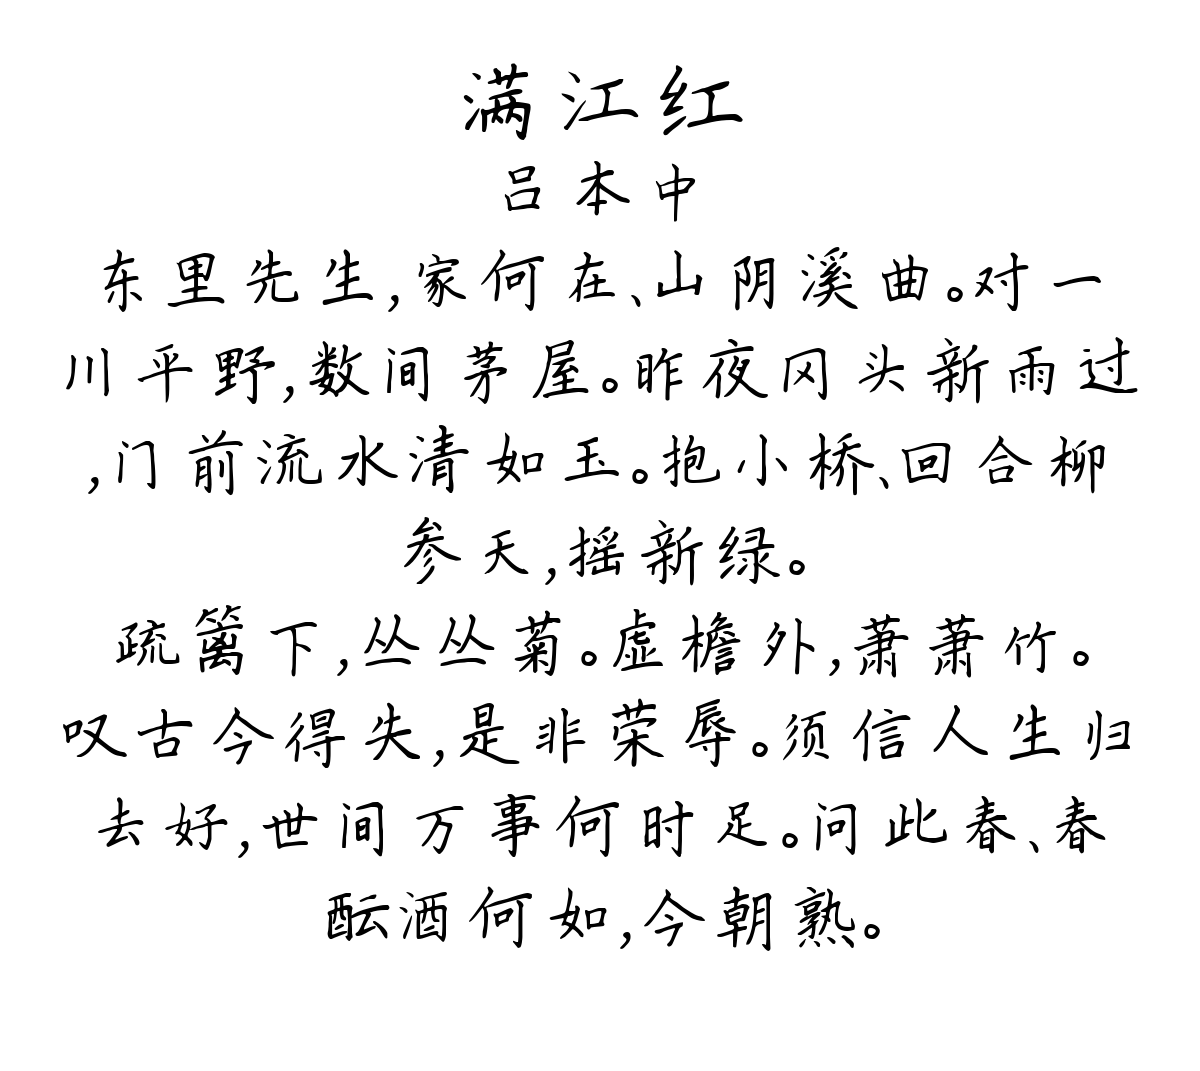 满江红
吕本中
东里先生,家何在、山阴溪曲。对一
川平野,数间茅屋。昨夜冈头新雨过
,门前流水清如玉。抱小桥、回合柳
参天,摇新绿。
疏篱下,丛丛菊。虚檐外,萧萧竹。
叹古今得失,是非荣辱。须信人生归
去好,世间万事何时足。问此春、春
酝酒何如,今朝熟。